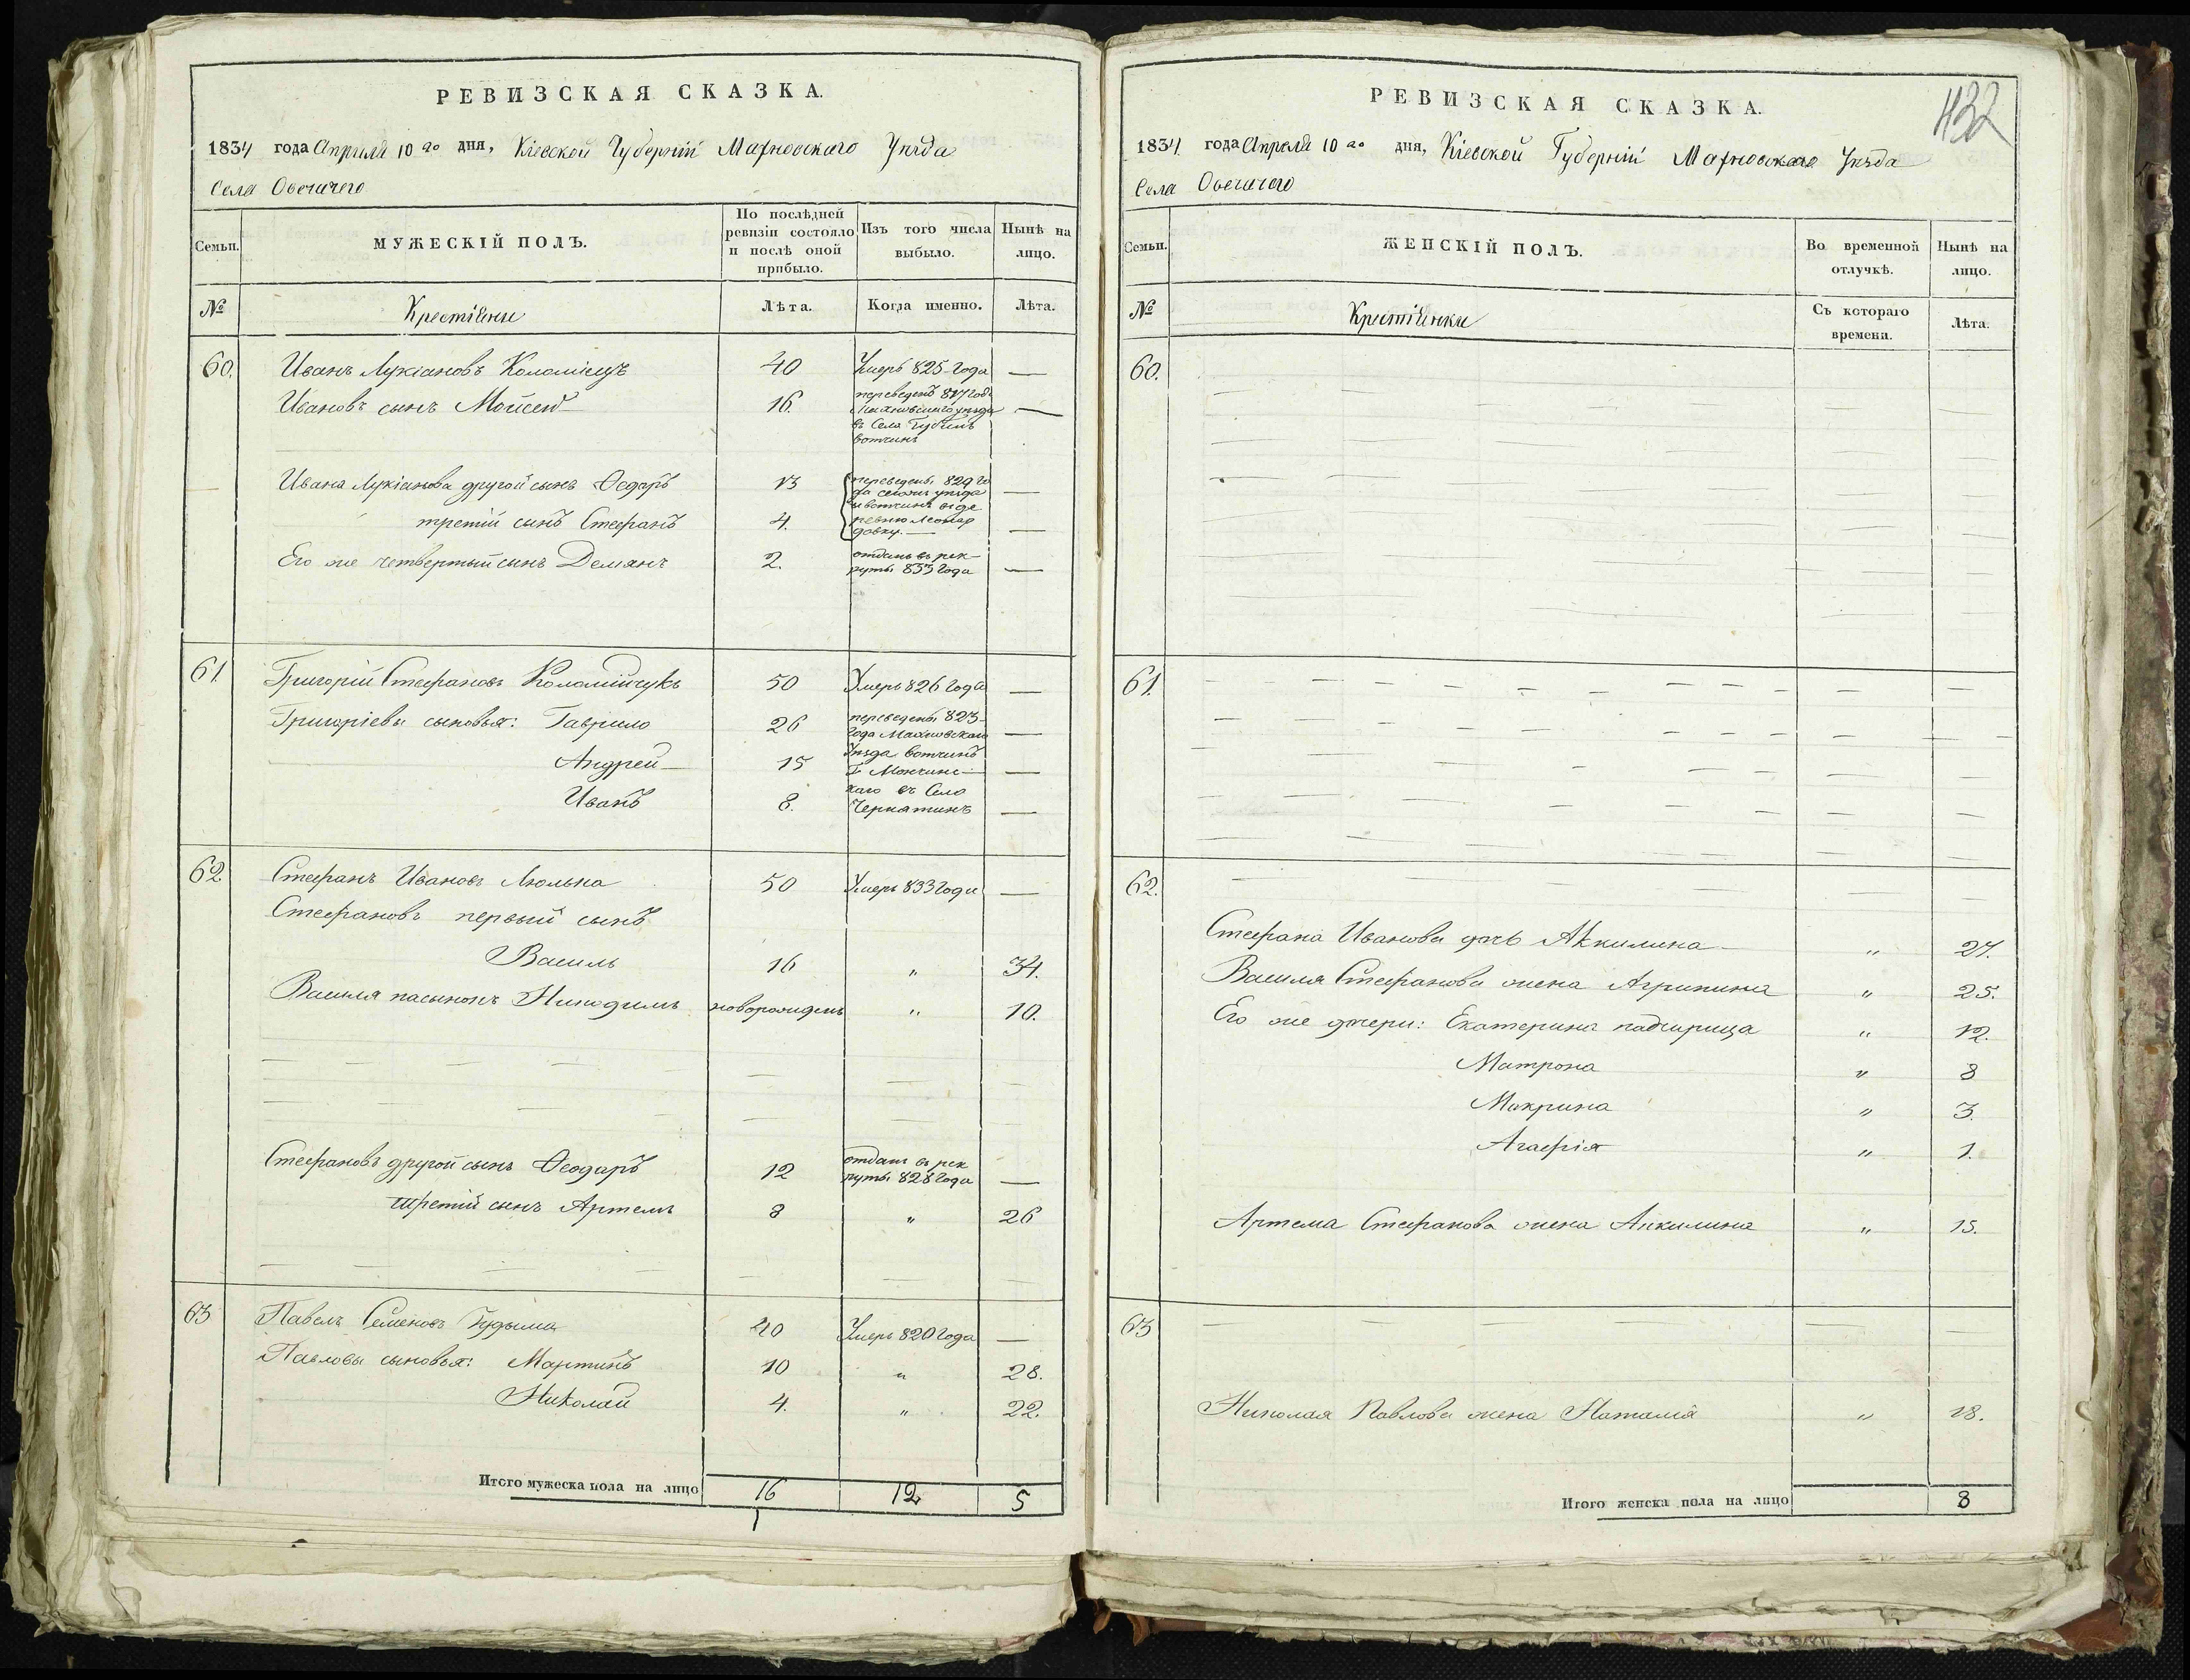 РЕВИЗСКАЯ СКАЗКА.
1834 года Апреля 10 го дня, Кіевской Губерніи Махновскаго Уѣзда
Села Овечачего
Семьи.
МУЖЕСКІЙ ПОЛЪ.
По послѣдней ревизіи состояло и послѣ оной прибыло.
Изъ того числа выбыло.
Нынѣ на лицо.
№
Крестіяни
Лѣта.
Когда именно.
Лѣта.
60. Иванъ Лукіановъ Коломіецъ 40 Умеръ 825 года —
Ивановъ сынъ Мойсей 16. переведенъ 817 года
Махновскаго уѣзда —
въ Села
вотчины
Ивана Лукіанова другой сынъ Ѳедоръ 13 переведены 829 го
да сегожъ уѣзда —
и вотчины въ де
третій сынъ Стефанъ 4. ревню Леонар
довку. —
Его же четвертый сынъ Демянъ 2. отданъ въ рек
руты 833 года —
61. Григорій Стефановъ Коломійчукъ 50 Умеръ 826 года —
Григоріевы сыновья: Гаврило 26 переведены 823
года Махновскаго —
Уѣзда вотчины
Андрей 15 Г. Мончинс —
каго въ Село
Иванъ 8. Чернятинъ —
62. Стефанъ Ивановъ Люлька 50 Умеръ 833 года —
Стефановъ первый сынъ
Василь 16 " 34.
Василя пасынокъ Никодимъ новорожденъ " 10.
Стефановъ другой сынъ Ѳеодоръ 12 отданъ въ рек
руты 828 года —
третій сынъ Артемъ 8 " 26
63 Павелъ Семеновъ Гудыма 40 Умеръ 820 года —
Павловы сыновья: Мартинъ 10 " 28.
Николай 4. " 22.
Итого мужеска пола на лицо 16 12 5
432
РЕВИЗСКАЯ СКАЗКА.
1834 года Апреля 10 го дня, Кіевской Губерніи Махновскаго Уѣзда
Села Овечачего
Семьи.
ЖЕНСКІЙ ПОЛЪ.
Во временной отлучкѣ.
Нынѣ на лицо.
№
Крестіянки
Съ котораго времени.
Лѣта.
60.
61.
62.
Стефана Иванова дочь Аккилина " 27.
Василя Стефанова жена Агрипина " 25.
Его же дщери: Екатерина падчирица " 12.
Матрона " 8
Макрина " 3.
Агафія " 1.
Артема Стефанова жена Аккилина " 15.
63
Николая Павлова жена Наталія " 18.
Итого женска пола на лицо 8